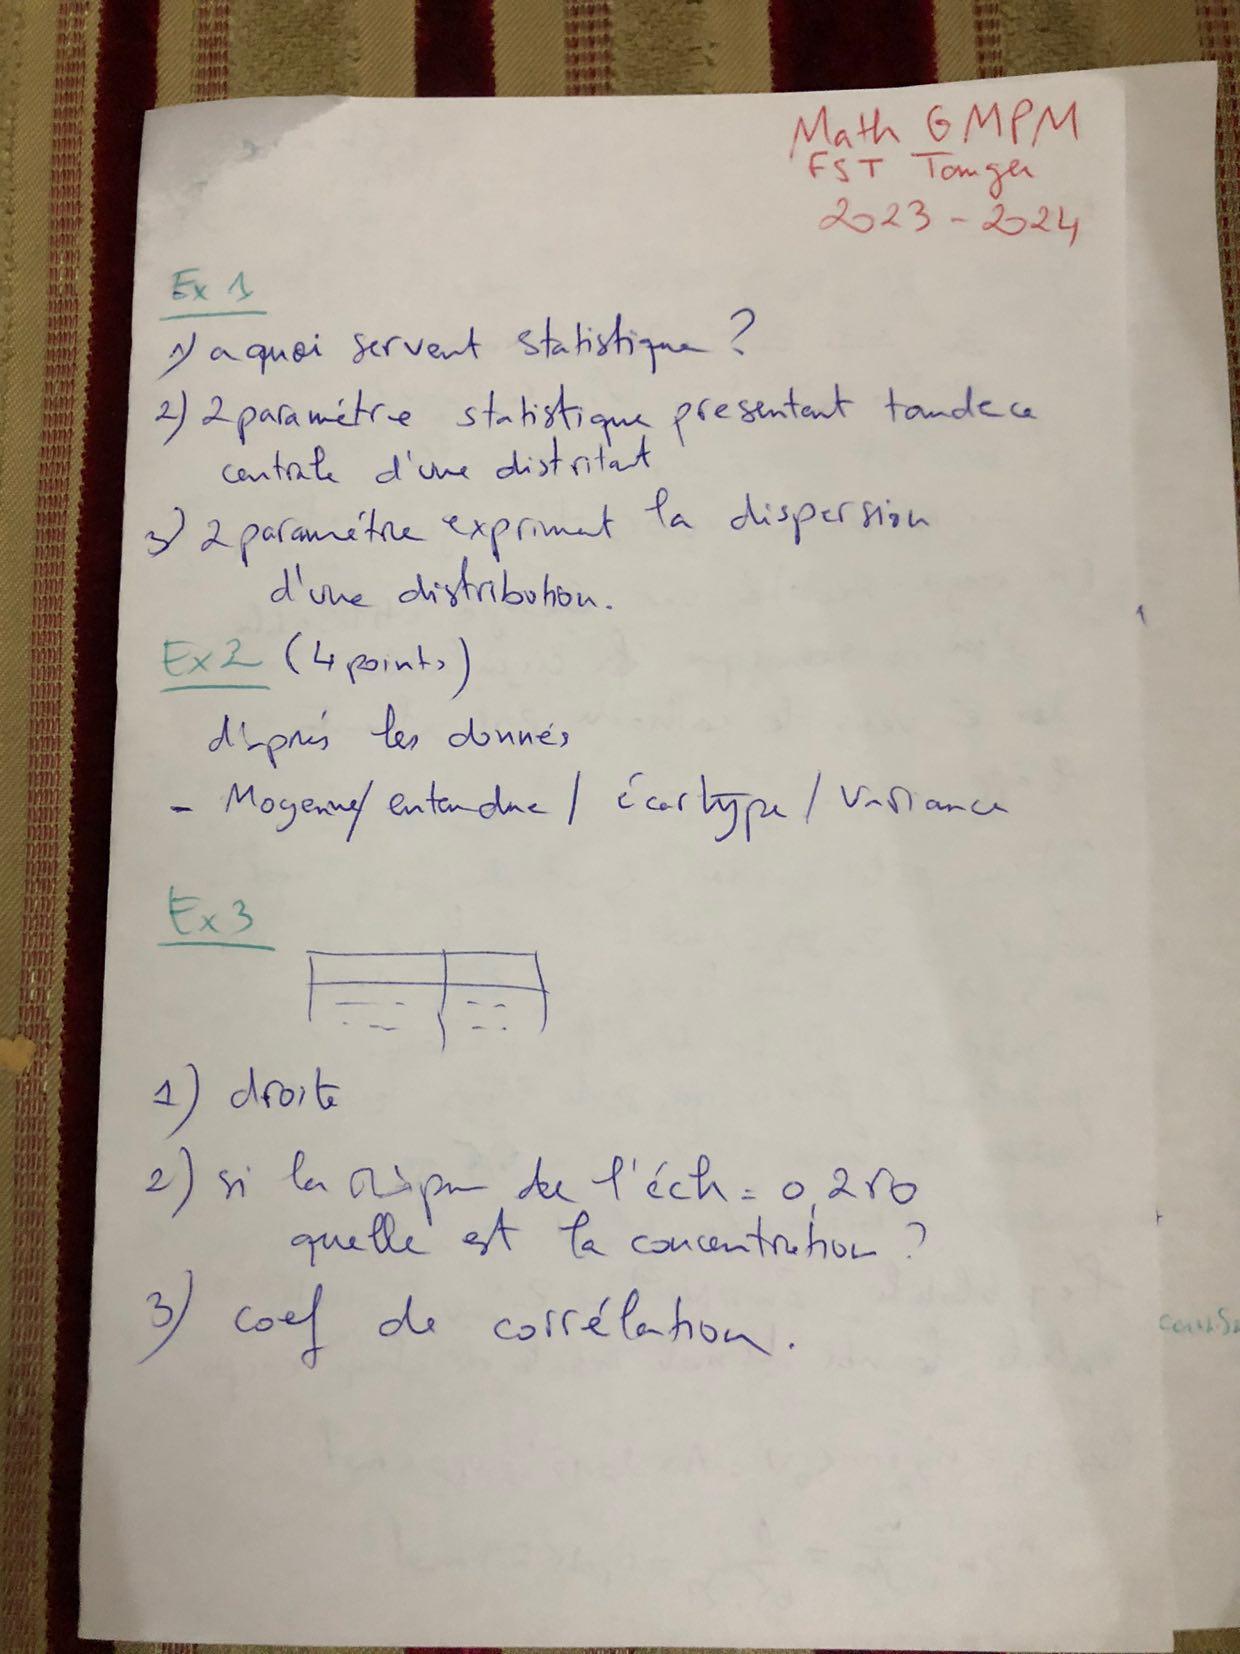 Math GMPM
FST Tanger
2023 - 2024
Ex 1
1) a quoi servent statistique ?
2) 2 paramétre statistique presentant tandece
centrale d'une distritant
3) 2 paramétre expriment la dispersion
d'une distribution.
Ex 2 (4 points)
d'après les donnés
- Moyenne / entendue / écartype / Variance
Ex 3
1) droite
2) si la de l'éch = 0,250
quelle est la concentration ?
3) coef de corrélation.